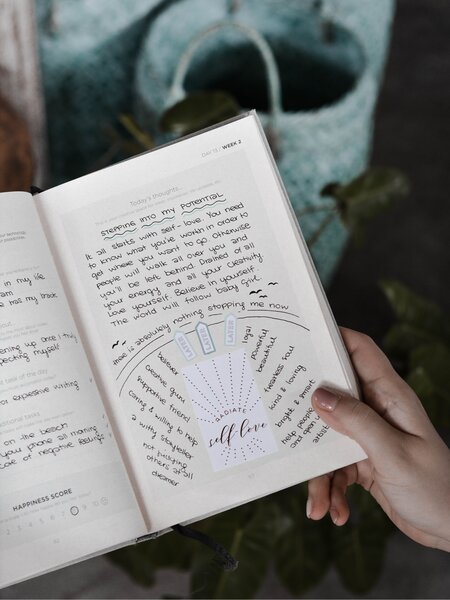 in my life
am
has my back
expecting myself
task of the day
expressive writing
additional tasks
on the beach
your phone all morning
of negative feelings
HAPPINESS SCORE
DAY 13 | WEEK 2
Today's thoughts...
STEPPING INTO MY POTENTIAL
It all starts with self-love. You need
to know what you're worth in order to
get where you want to go. Otherwise
people will walk all over you and
you'll be left behind. Drained of all
your energy and all your creativity.
Love yourself. Believe in yourself.
The world will follow baby girl.
there is absolutely nothing stopping me now
LATER
LATER
believer
creative
supportive friend
caring & willing to help
a witty storyteller
not judging
others at all
dreamer
RADIATE
self love
loyal
powerful
beautiful
fearless soul
kind & loving
bright & smart
help people
and open